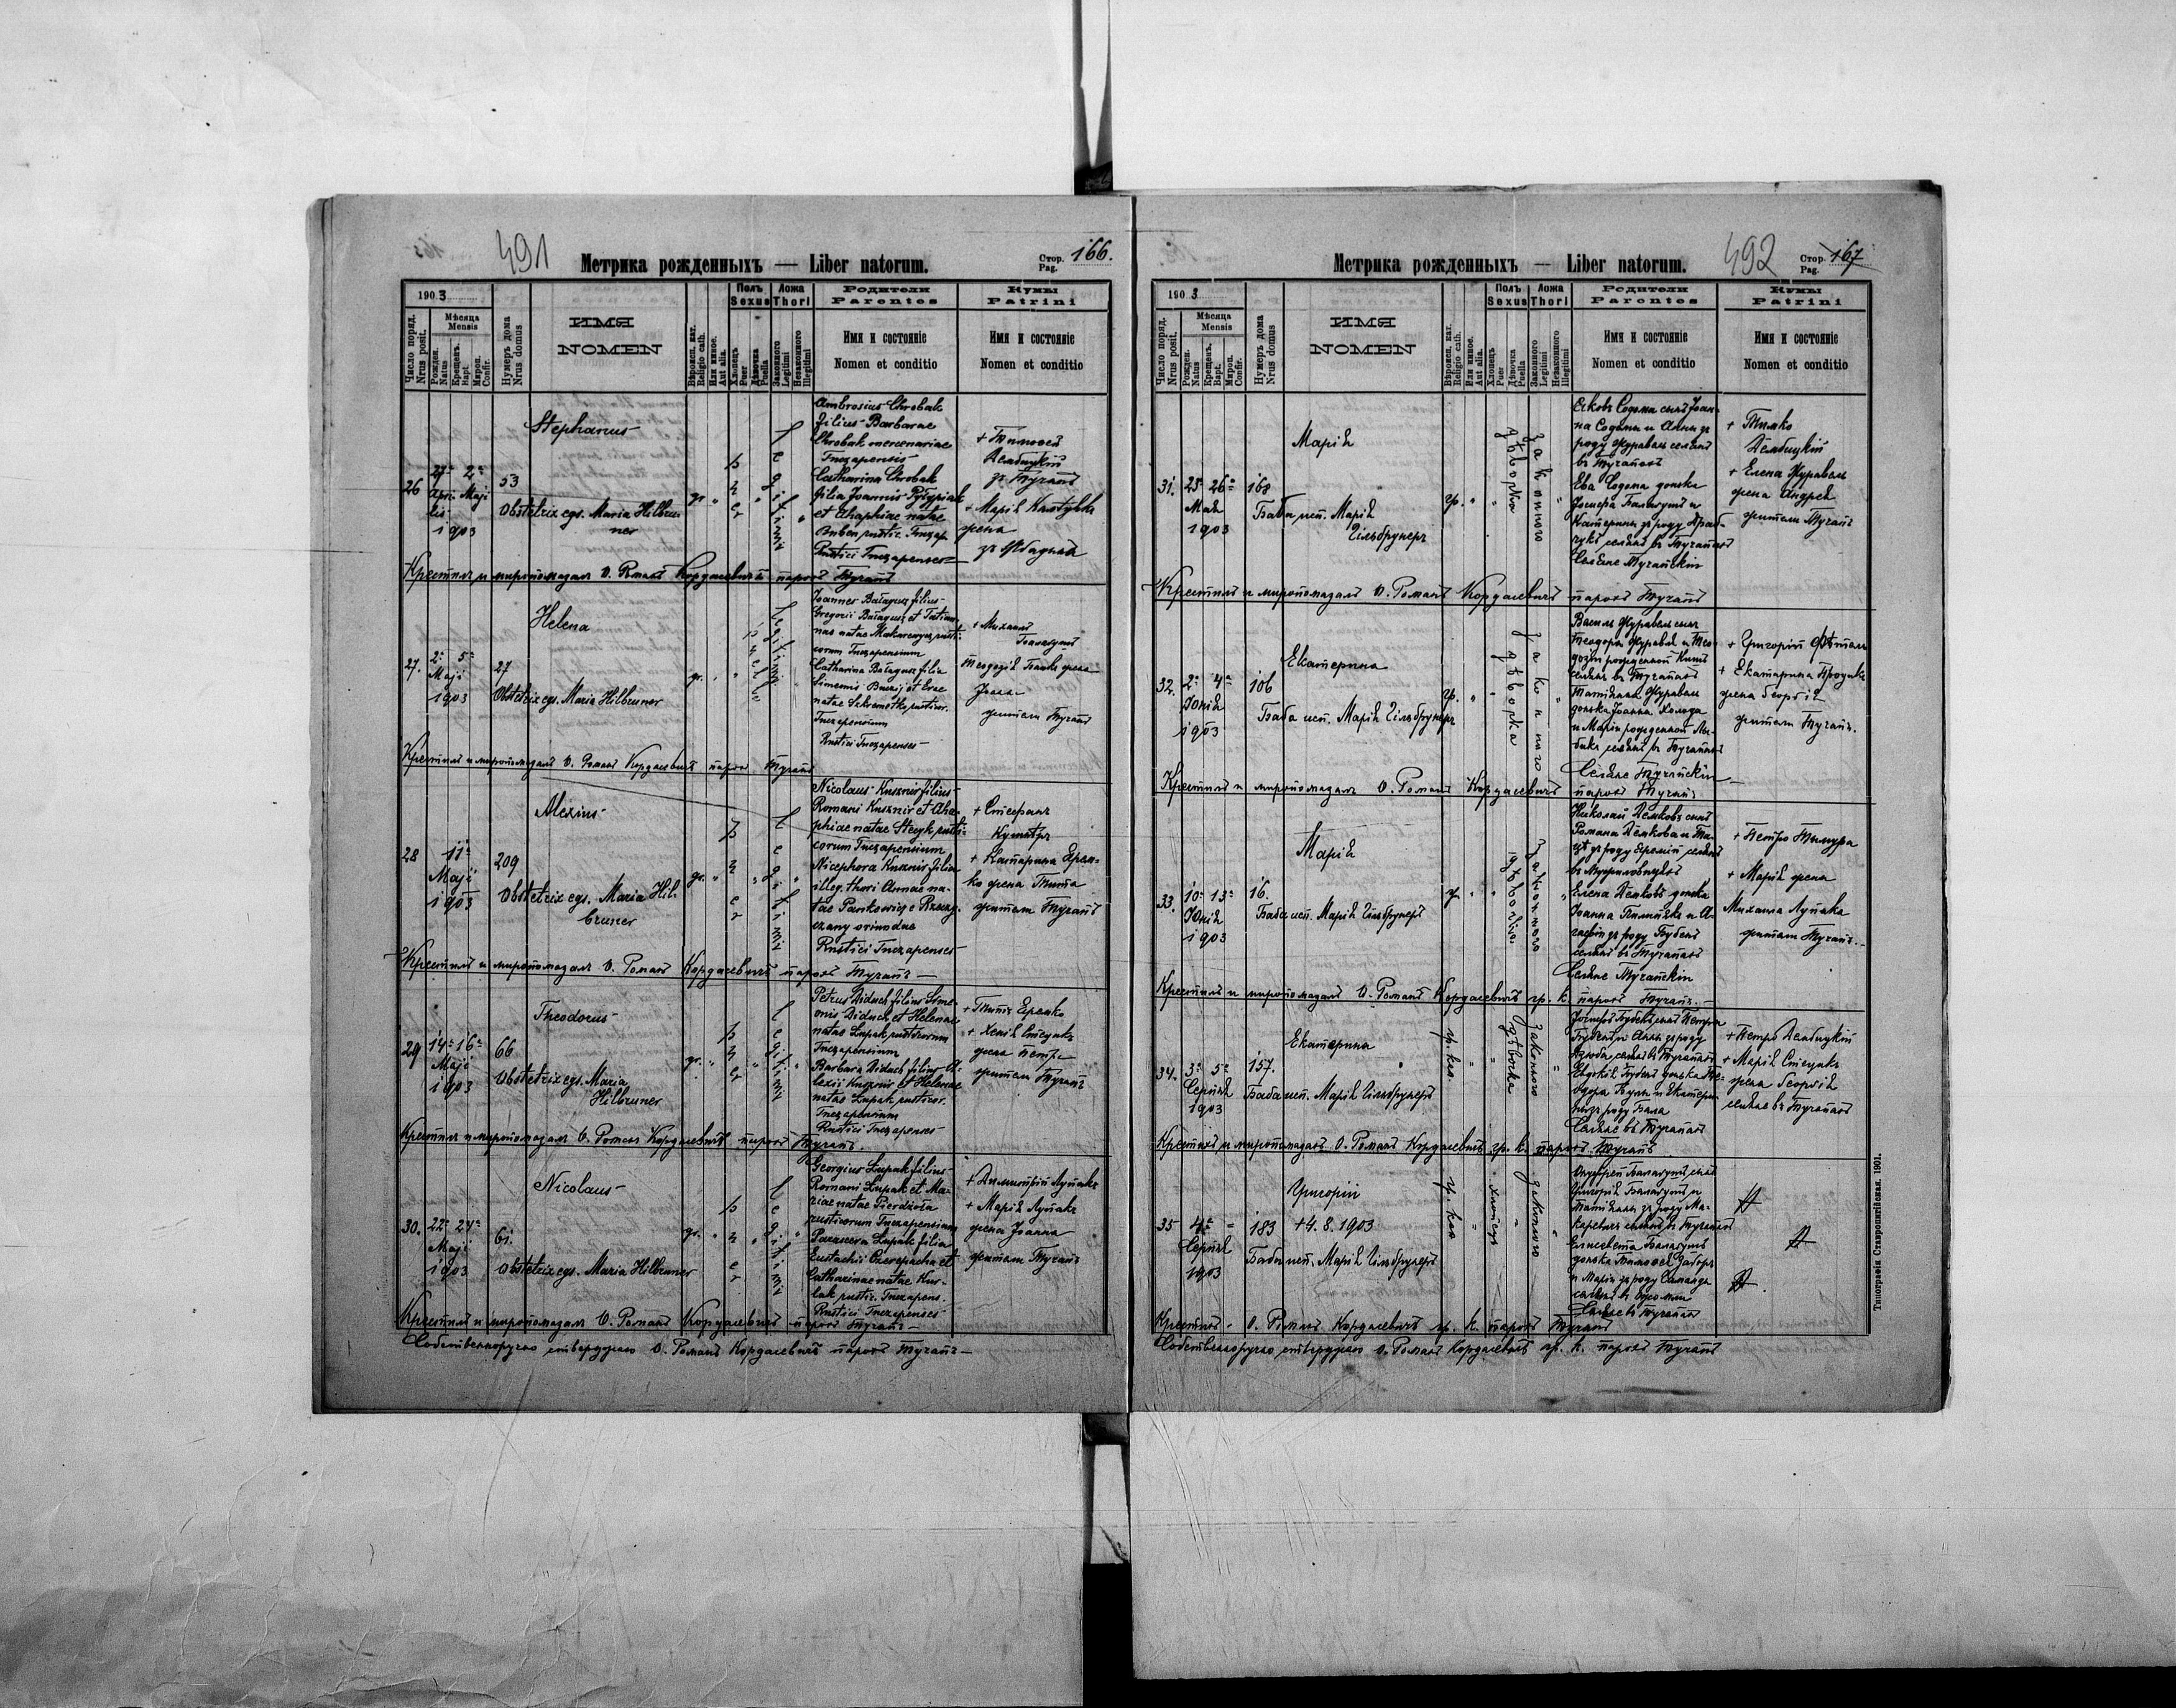 491
Метрика рожденныхъ — Liber natorum.
Стор. Pag. 166.
1903
Число поряд. Nrus posit.
Мѣсяца Mensis
Рожден. Natus
Крещенъ. Bapt.
Миропом. Confir.
Нумеръ дома Nrus domus
ИМЯ
NOMEN
Вѣроисп. кат. Religio cath.
Или иное. Aut alia.
Полъ Sexus
Хлопець Puer
Дѣвочка Puella
Ложа Thori
Законного Legitimi
Незаконного Illegitimi
Родители
Parentes
Имя и состояніе
Nomen et conditio
Кумы
Patrini
Имя и состояніе
Nomen et conditio
26
27 2
Apri- Maji
lis
1903
53
Stephanus
Obstetrix egs. Maria Hilbru-
ner
gr.
puer
legitimi
Ambrosius Chrobak
filius Barbarae
Chrobak mercenariae
Tuczapensis
Catharina Chrobak
filia Joannis
et Ahaphiae natae
Buben rustic. Tuczap.
Rustici Tuczapenses
+ Тимофей
Дембицкій
зъ Тучапъ
+ Марія
жена
зъ
Крестилъ и миропомазалъ О. Романъ Кордасевичъ парохъ Тучапъ
27.
2 5
Maji
1903
27
Helena
Obstetrix egs. Maria Hilbruner
gr.
puella
legitimi
Joannes Bałagus filius
Gregorii Bałagus et Tatian-
nae natae rusti-
corum Tuczapensium
Catharina Bałagus filia
Simeonis et Evae
natae rusticor.
Tuczapensium
Rustici Tuczapenses
+ Михаилъ
Теодозія жена
жители Тучапъ
Крестилъ и миропомазалъ О. Романъ Кордасевичъ парохъ Тучапъ
28
11
Maji
1903
209
Alexius
Obstetrix egs. Maria Hil-
bruner
gr.
puer
legitimi
Nicolaus Kusznir filius
Romani Kusznir et Aha-
phiae natae Stecyk rusti-
corum Tuczapensium
Nicephora Kusznir filia
illeg. thori Annae na-
tae Pankowicz e
oriundae
Rustici Tuczapenses
+ Стефанъ
Кушнѣръ
+ Катарина Ерем-
ко жена Тита
жители Тучапъ
Крестилъ и миропомазалъ О. Романъ Кордасевичъ парохъ Тучапъ
29
14 16
Maji
1903
66
Theodorus
Obstetrix egs. Maria
Hilbruner
gr.
puer
legitimi
Petrus Diduch filius Sime-
onis Diduch et Helenae
natae Łupak rusticorum
Tuczapensium
Barbara Diduch filia A-
lexii Kusznir et Helenae
natae Łupak rusticor.
Tuczapensium
Rustici Tuczapenses
+ Титъ Еремко
+ Стецикъ
жена Петра
жители Тучапъ
Крестилъ и миропомазалъ О. Романъ Кордасевичъ парохъ Тучапъ.
30.
22 24
Maji
1903
61.
Nicolaus
Obstetrix egs. Maria Hilbruner
gr.
puer
legitimi
Georgius Łupak filius
Romani Łupak et Ma-
riae natae Pierdzoła
rusticorum Tuczapensium
Parasceva Łupak filia
Eustachii Czerepacha et
Catharinae natae Kus-
lak rustic. Tuczapens.
Rustici Tuczapenses
+ Димитрій Лупакъ
+ Марія Лупакъ
жена Іоанна
жители Тучапъ
Крестилъ и миропомазалъ О. Романъ Кордасевичъ парохъ Тучапъ
Собственноручно утверждаю О. Романъ Кордасевичъ парохъ Тучапъ
492
Метрика рожденныхъ — Liber natorum.
Стор. Pag. 167
1903
Число поряд. Nrus posit.
Мѣсяца Mensis
Рожден. Natus
Крещенъ. Bapt.
Миропом. Confir.
Нумеръ дома Nrus domus
ИМЯ
NOMEN
Вѣроисп. кат. Religio cath.
Или иное. Aut alia.
Полъ Sexus
Хлопець Puer
Дѣвочка Puella
Ложа Thori
Законного Legitimi
Незаконного Illegitimi
Родители
Parentes
Имя и состояніе
Nomen et conditio
Кумы
Patrini
Имя и состояніе
Nomen et conditio
31.
25 26
Мая
1903
168
Марія
Баба исп. Марія
Гільбрунеръ
гр.
дѣвочка
законного
Яковъ Содома сынъ Іоан-
на Содомы и Анны зъ
роду Журавель селянъ
въ Тучапахъ
Ева Содома донька
Іосифа Балагушъ и
Катерины зъ роду
селянъ въ Тучапахъ
Селяне Тучапскіи
+ Тимко
Дембицкій
+ Елена Журавель
жена Андрея
жители Тучапъ
Крестилъ и миропомазалъ О. Романъ Кордасевичъ парохъ Тучапъ
32.
2 4
Юнія
1903
106
Екатерина
Баба исп. Марія Гільбрунеръ
гр.
дѣвочка
законного
Василь Журавель сынъ
Теодора Журавля и Тео-
дозіи рожденной
селянъ въ Тучапахъ
Татіянна Журавель
донька Іоанна Холода
и Маріи рожденной
селянъ въ Тучапахъ
Селяне Тучапскіи
+ Григорій
+ Екатарина
жена Георгія
жители Тучапъ.
Крестилъ и миропомазалъ О. Романъ Кордасевичъ парохъ Тучапъ
33.
10 13
Юнія
1903
16.
Марія
Баба исп. Марія Гільбрунеръ
гр
законного
Николай Демковъ сынъ
Романа Демкова и
зъ роду Еремій селянъ
въ
Елена Демковъ донька
Іоанна и А-
гафіи зъ роду Бубенъ
селянъ въ Тучапахъ
Селяне Тучапскіи
+ Петро
+ Марія жена
Михаила Лупака
жители Тучапъ.
Крестилъ и миропомазалъ О. Романъ Кордасевичъ гр. к. парохъ Тучапъ.
34.
3 5
Серпня
1903
157.
Екатерина
Баба исп. Марія Гільбрунеръ
гр. кат.
дѣвочка
законного
Іосифъ Бубенъ сынъ Петра
Бубенъ и Анны зъ роду
селянъ въ Тучапахъ
Евдокія Бубенъ донька Те-
одора и Екатери-
ны зъ роду
Селяне въ Тучапахъ
+ Петро Дембицкій
+ Марія Стецикъ
жена Георгія
селяне въ Тучапахъ
Крестилъ и миропомазалъ О. Романъ Кордасевичъ гр. к. парохъ Тучапъ
35
4
Серпня
1903
183
Григорій
+ 4. 8. 1903
Баба исп. Марія Гільбрунеръ
гр. кат
хлопець
законного
Онуфрей Балагушъ сынъ
Григорія Балагушъ и
Татіянны зъ роду Ма-
каревичъ селянъ въ Тучапахъ
Елисавета Балагушъ
донька Тимофея
и Маріи зъ роду
Селяне въ Тучапахъ
Крестилъ О. Романъ Кордасевичъ гр. к. парохъ Тучапъ
Собственноручно утверждаю О. Романъ Кордасевичъ гр. к. парохъ Тучапъ
Типографія Ставропигійская. 1901.